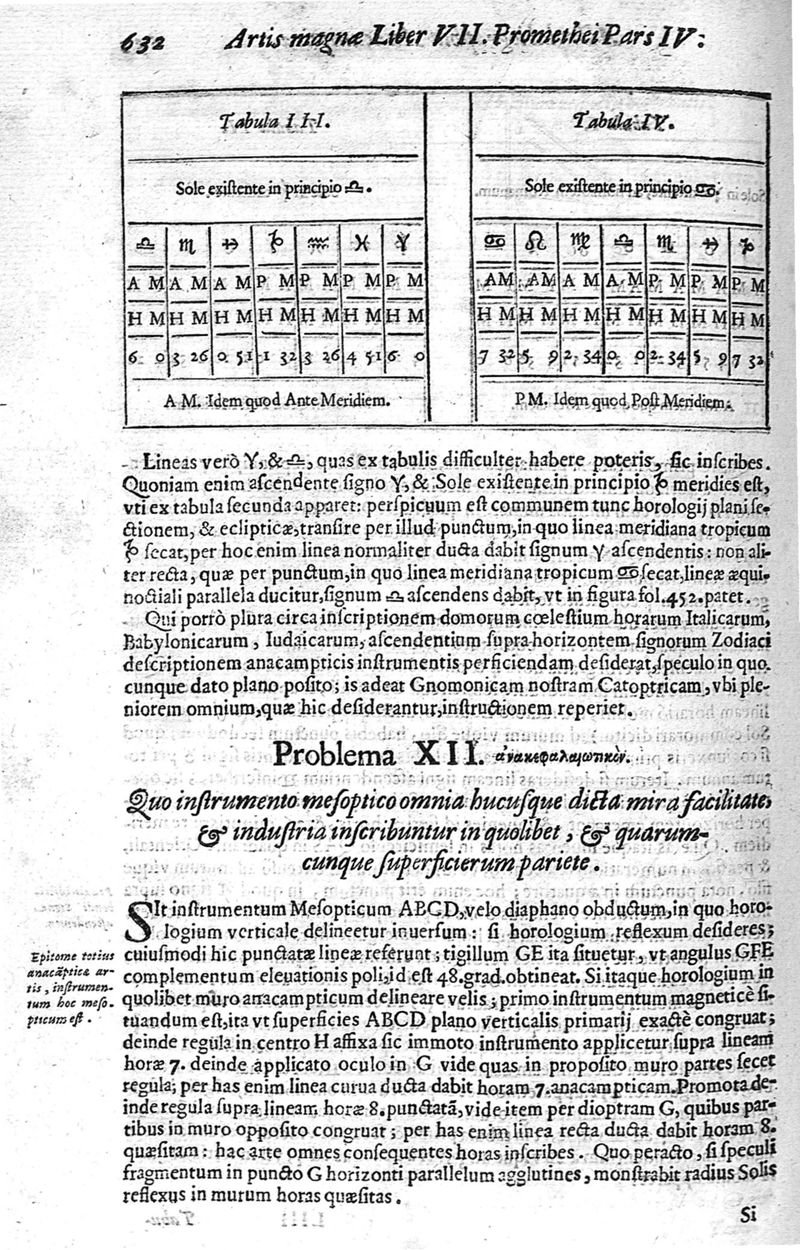 632 Artis magnæ Liber VII. Promethei Pars IV:
Tabula III. Tabula IV.
Sole existente in principio ♎. Sole existente in principio ♋.
♎ ♏ ♐ ♑ ♒ ♓ ♈ ♋ ♌ ♍ ♎ ♏ ♐ ♑
A M A M A M P M P M P M P M A M A M A M A M P M P M P M
H M H M H M H M H M H M H M H M H M H M H M H M H M H M
6 0 3 26 0 51 1 32 3 26 4 51 6 0 7 32 5 9 2 34 0 0 2 34 5 9 7 32
A M. Idem quod Ante Meridiem. P M. Idem quod Post Meridiem.
Lineas verò ♈, & ♎, quas ex tabulis difficulter habere poteris, sic inscribes.
Quoniam enim ascendente signo ♈, & Sole existente in principio ♑ meridies est,
vti ex tabula secunda apparet: perspicuum est communem tunc horologij plani se-
ctionem, & eclipticæ, transire per illud punctum, in quo linea meridiana tropicum
♑ secat, per hoc enim linea normaliter ducta dabit signum ♈ ascendentis: non ali-
ter recta, quæ per punctum, in quo linea meridiana tropicum ♋ secat, lineæ æqui-
noctiali parallela ducitur, signum ♎ ascendens dabit, vt in figura fol. 452. patet.
Qui porrò plura circa inscriptionem domorum cœlestium horarum Italicarum,
Babylonicarum, Iudaicarum, ascendentium supra horizontem signorum Zodiaci
descriptionem anacampticis instrumentis perficiendam desiderat, speculo in quo
cunque dato plano posito; is adeat Gnomonicam nostram Catoptricam, vbi ple-
niorem omnium, quæ hic desiderantur, instructionem reperiet.
Problema XII. ἀνακεφαλαιωτικὸν.
Quo instrumento mesoptico omnia hucusque dicta mira facilitate,
& industria inscribuntur in quolibet, & quarum-
cunque superficierum pariete.
SIt instrumentum Mesopticum ABCD, velo diaphano obductum, in quo horo-
logium verticale delineetur inuersum: si horologium reflexum desideres;
cuiusmodi hic punctatæ lineæ referunt; tigillum GE ita situetur, vt angulus GFE
complementum eleuationis poli, id est 48. grad. obtineat. Si itaque horologium in
quolibet muro anacampticum delineare velis; primo instrumentum magneticè si-
tuandum est, ita vt superficies ABCD plano verticalis primarij exactè congruat;
deinde regula in centro H affixa sic immoto instrumento applicetur supra lineam
horæ 7. deinde applicato oculo in G vide quas in proposito muro partes secet
regula; per has enim linea curua ducta dabit horam 7. anacampticam. Promota de-
inde regula supra lineam horæ 8. punctatã, vide item per dioptram G, quibus par-
tibus in muro opposito congruat; per has enim linea recta ducta dabit horam 8.
quæsitam: hac arte omnes consequentes horas inscribes. Quo peracto, si speculi
fragmentum in puncto G horizonti parallelum agglutines, monstrabit radius Solis
reflexus in murum horas quæsitas.
Epitome totius
anacãpticæ ar-
tis, instrumen-
tum hoc meso-
pticum est.
Si